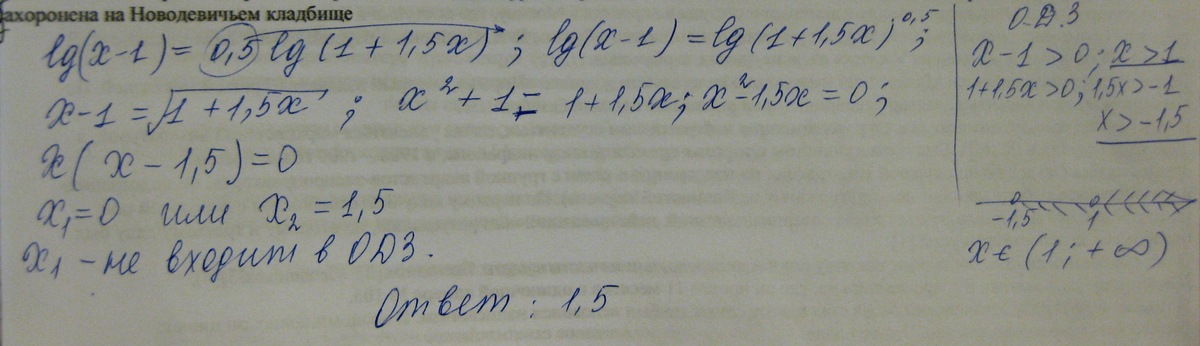 ахоронена на Новодевичьем кладбище
lg(x-1) = 0,5 lg (1 + 1,5x) ; lg(x-1) = lg (1+1,5x)^0,5 ;
x-1 = √1 + 1,5x ; x² + 1 = 1 + 1,5x ; x² - 1,5x = 0 ;
x ( x - 1,5) = 0
x₁ = 0 или x₂ = 1,5
x₁ - не входит в ОДЗ.
Ответ : 1,5
О.Д.З
x - 1 > 0 ; x > 1
1+1,5x > 0 ; 1,5x > -1
x > -1,5
-1,5 1
x ∈ (1 ; + ∞)